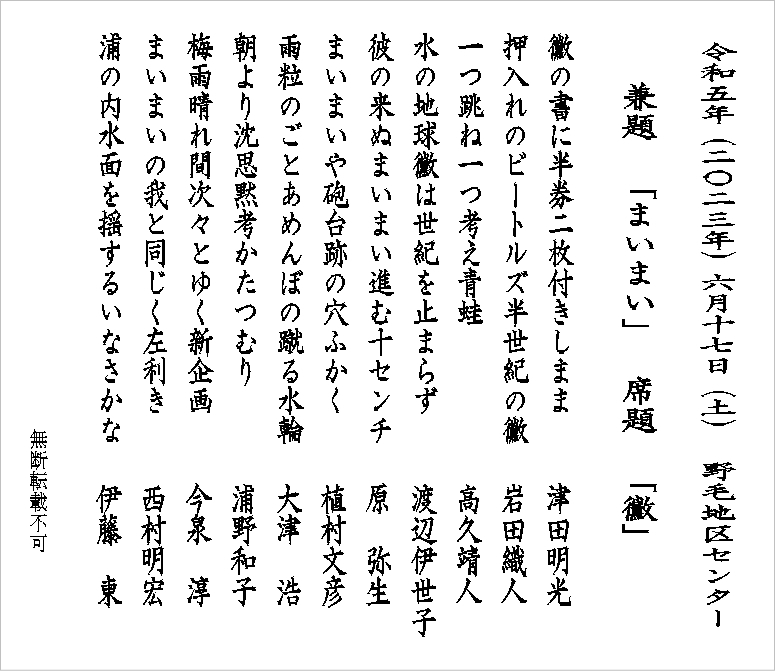 令和五年（二〇二三年）六月十七日（土）　野毛地区センター
兼題　「まいまい」　席題　「黴」
黴の書に半券二枚付きしまま　津田明光
押入れのビートルズ半世紀の黴　岩田織人
一つ跳ね一つ考え青蛙　高久靖人
水の地球黴は世紀を止まらず　渡辺伊世子
彼の来ぬまいまい進む十センチ　原　弥生
まいまいや砲台跡の穴ふかく　植村文彦
雨粒のごとあめんぼの蹴る水輪　大津　浩
朝より沈思黙考かたつむり　浦野和子
梅雨晴れ間次々とゆく新企画　今泉　淳
まいまいの我と同じく左利き　西村明宏
浦の内水面を揺するいなさかな　伊藤　東
無断転載不可